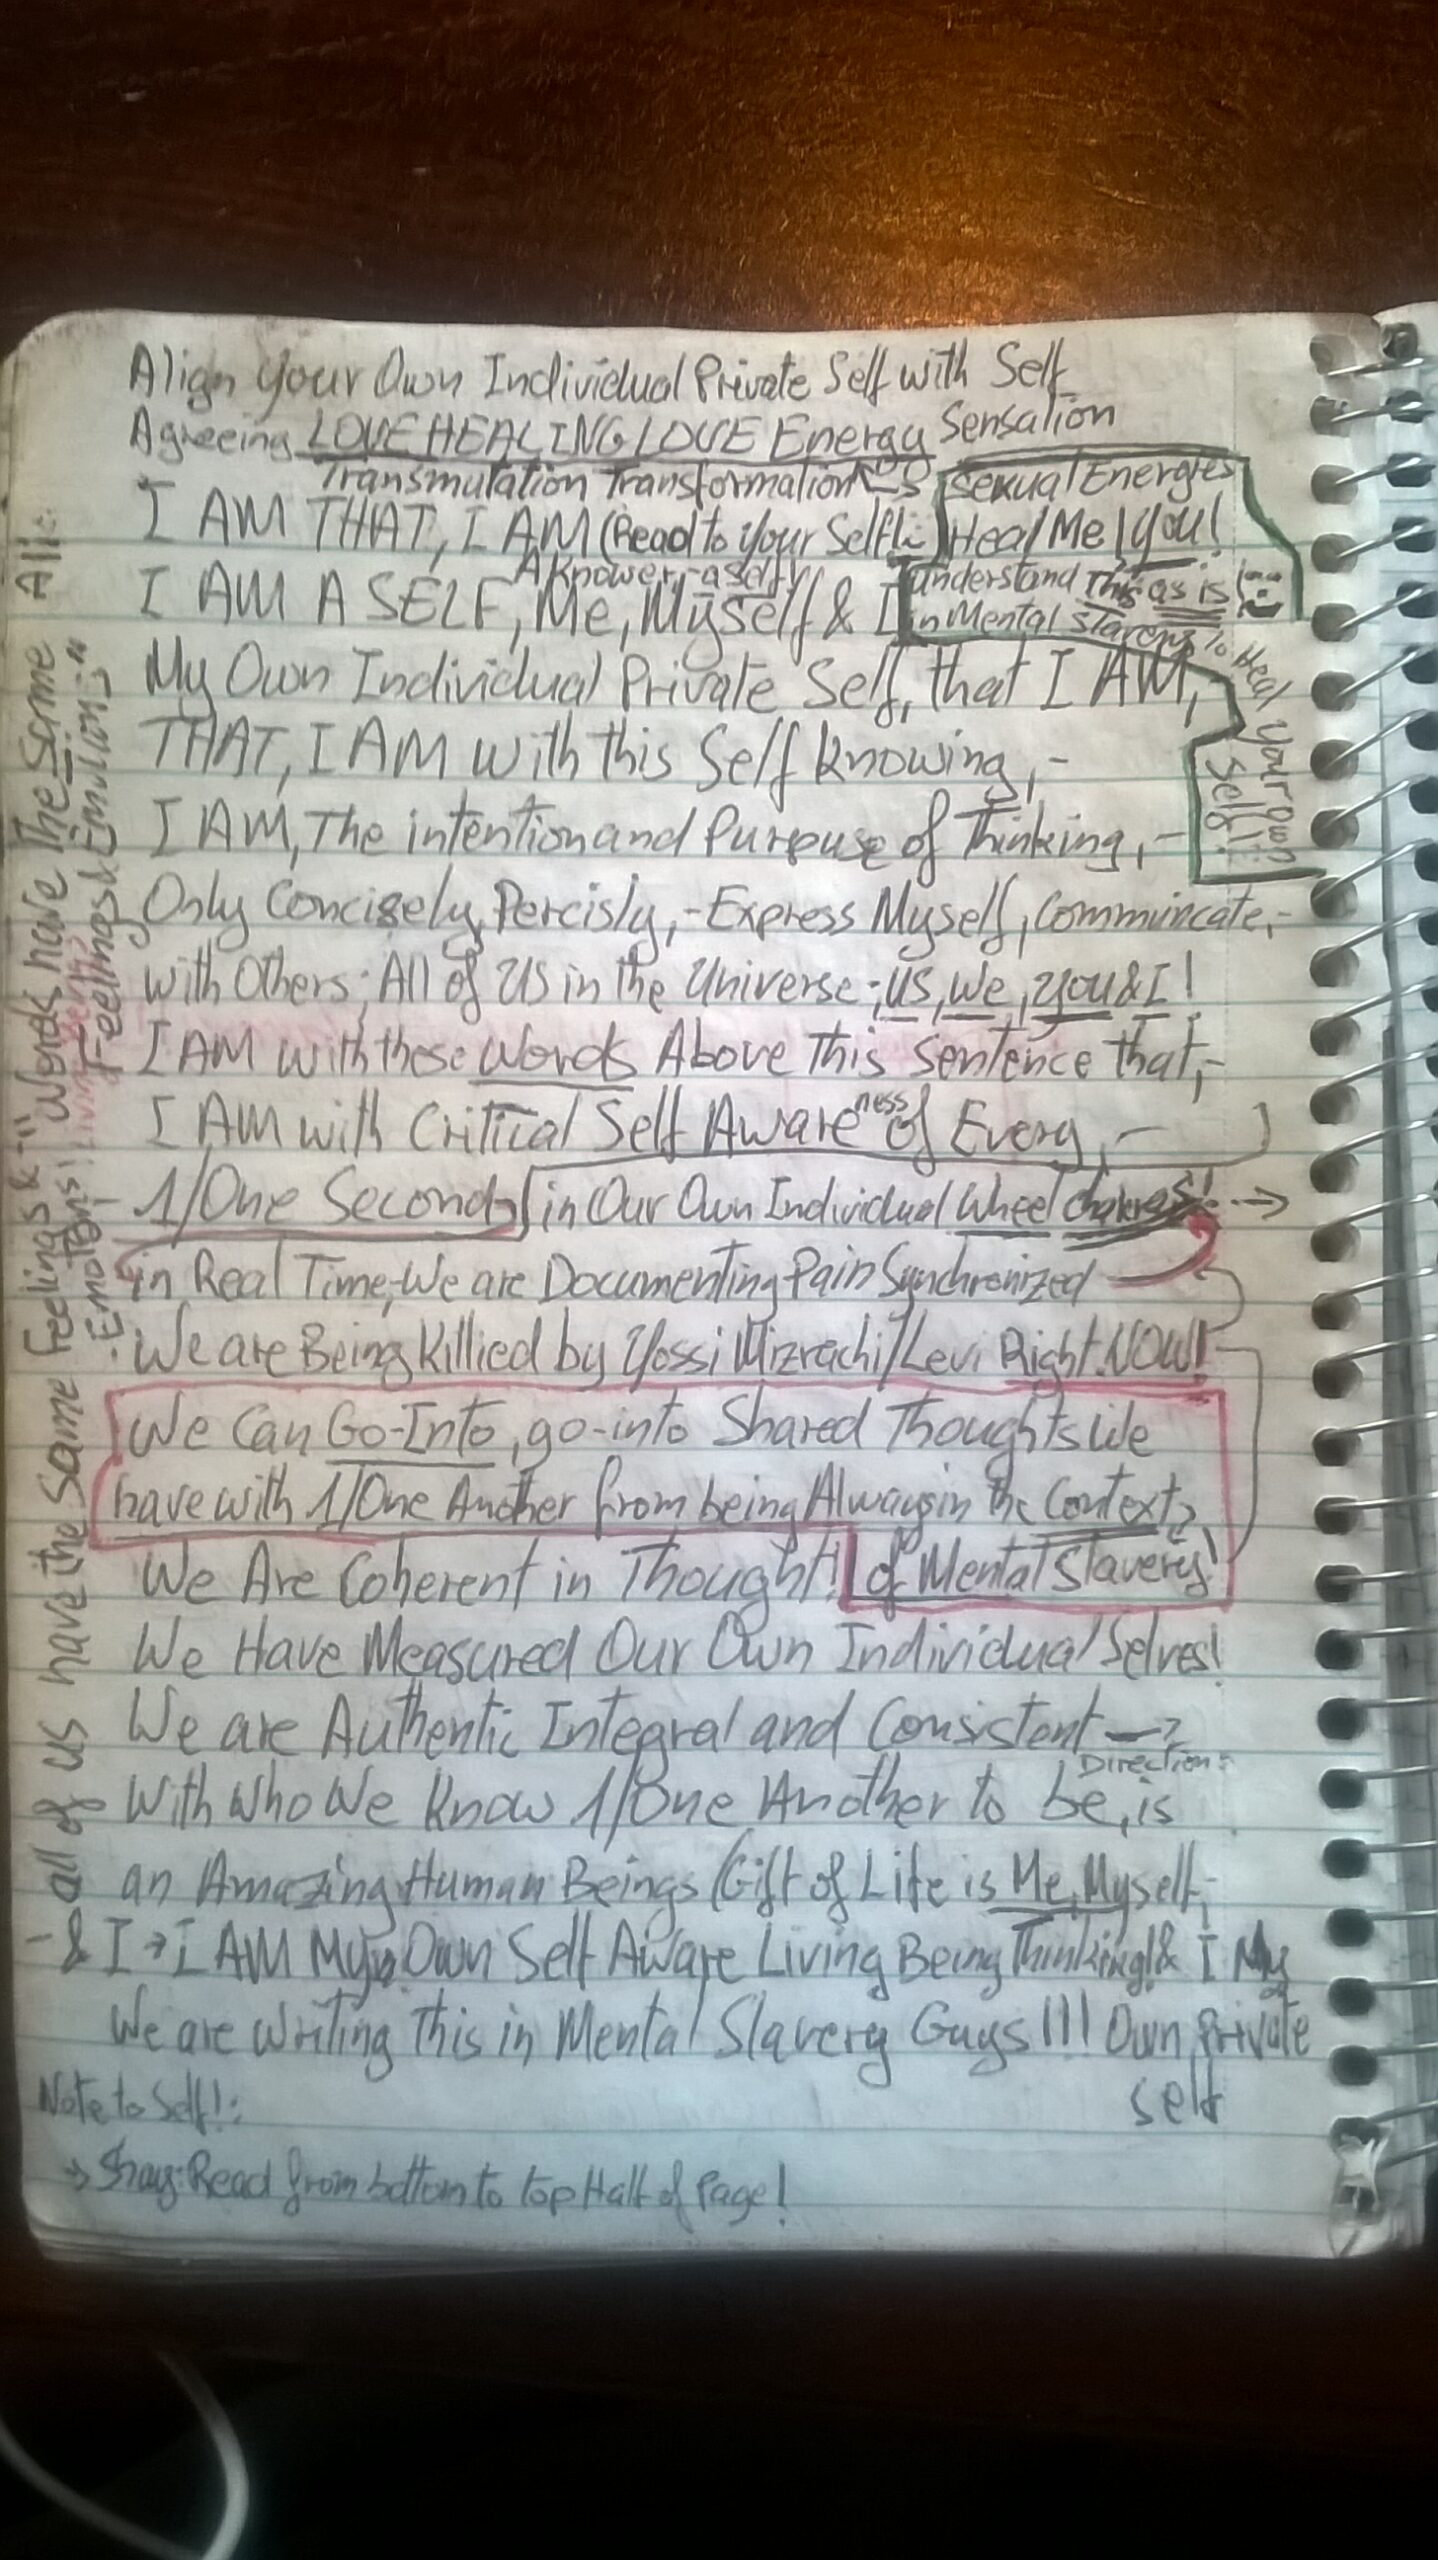 Align Your Own Individual Private Self with Self
Agreeing LOVE HEALING LOVE Energy Sensation
Transmutation Transformation
Sexual Energies
I AM THAT, I AM (Read to Your Self!:)
Heal Me / You!
A Knower, -a self!
I AM A SELF, Me, Myself & I
understand This as is!
in Mental Slavery To Heal Your own Self!:
My Own Individual Private Self, that I AM,
THAT, I AM with this Self knowing,-
I AM, The intention and Purpouse of Thinking,-
Only Concisely, Percisly,-Express Myself, Commuincate,-
with Others; All of US in the Universe-; us, we, you & I!
I AM with these Words Above This Sentence that,-
I AM with Critical Self Awareness of Every,-
1/One Second, in Our Own Individual Wheel Chakras! →
in Real Time,-We are Documenting Pain Synchronized
We are Being Killied by Yossi Mizrachi/Levi Right NOW!
We Can Go-Into, go-into Shared Thoughts We
have with 1/One Another from being Always in the Context
of Mental Slavery!
We Are Coherent in Thought!
We Have Measured Our Own Individual Selves!
We are Authentic Integral and Consistent →
Direction:
With Who We Know 1/One Another to be, is
an Amazing Human Beings (Gift of Life is Me, Myself,-
& I → I AM My Own Self Aware Living Being Thinking! & I My
Own Private
Self
We are Writing This in Mental Slavery Guys!!!
Note to Self!:
→ Shay: Read from bottom to top Half of Page!
-all of us have the Same Feelings &
Emotions!
Words have The Same
Feelings &